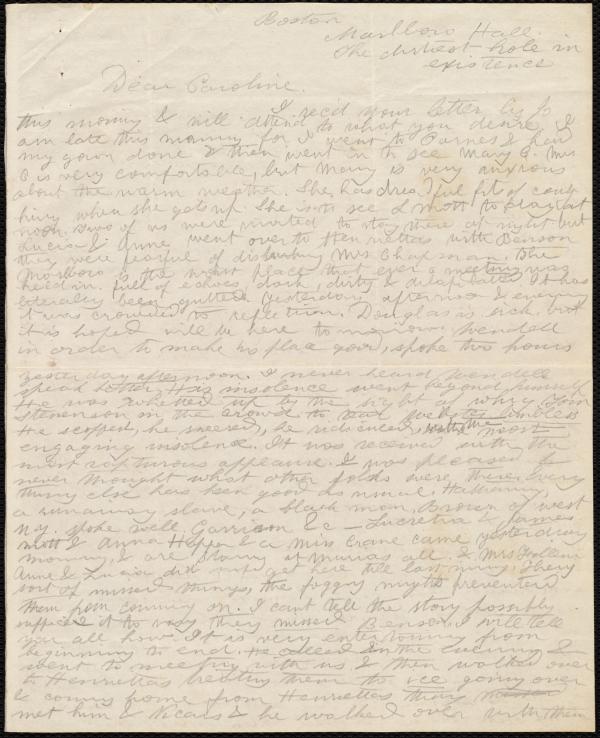 Boston
Marlboro Hall.
The dirtiest hole in
existence
Dear Caroline.
I rec'd your letter by
this morning & will attend to what you desire. I
am late this morning for I went to & had
my gown done & then went in to see Mary G. Mrs
G is very comfortable, but Mary is very anxious
about the warm weather. She has dreadful fit of cough
hing when she gets up. She is to see L Mott to day at
noon. Two of us were invited to stay there at night but
Lucia & Anne went over to Henriettas with Benson
they were fearful of disturbing Mrs Chapman. The
Marlboro is the worst place that ever a meeting was
held in. full of echoes, dark, dirty & dilapidated. It has
literally been gutted. Yesterday afternoon & evening
it was crowded to repletion. Douglas is sick. but
it is hoped will be here to morrow. Wendell
in order to make his place good, spoke two hours
yesterday afternoon. I never heard Wendell
speak better. His insolence went beyond himself
He was whetted up by the sight of
Stevenson in the crowd to
He scoffed, he sneered, he ridiculed, with the most
engaging insolence. It was received with the
most rapturous applause. I was pleased &
never thought what other folks were there. Every
thing else has been good as usual. Hathaway,
a runaway slave, a black man, Brown of west
N.Y. spoke well, Garrison &c — Lucretia & James
Mott & Anna Hopper & a Miss Crane came yesterday
morning, & are staying at Marias all, & Mrs Follen.
Anne & Lucia did not get here till last ning. They
sort of missed things, the foggy night prevented
them from coming on. I cant tell the story possibly
suffice it to say they missed Benson. will tell
you all how. It is very entertaining from
beginning to end. In the evening
went to meeting with us & then walked over
to Henriettas going over
& coming home from Henriettas they
met him & & he walked over with them